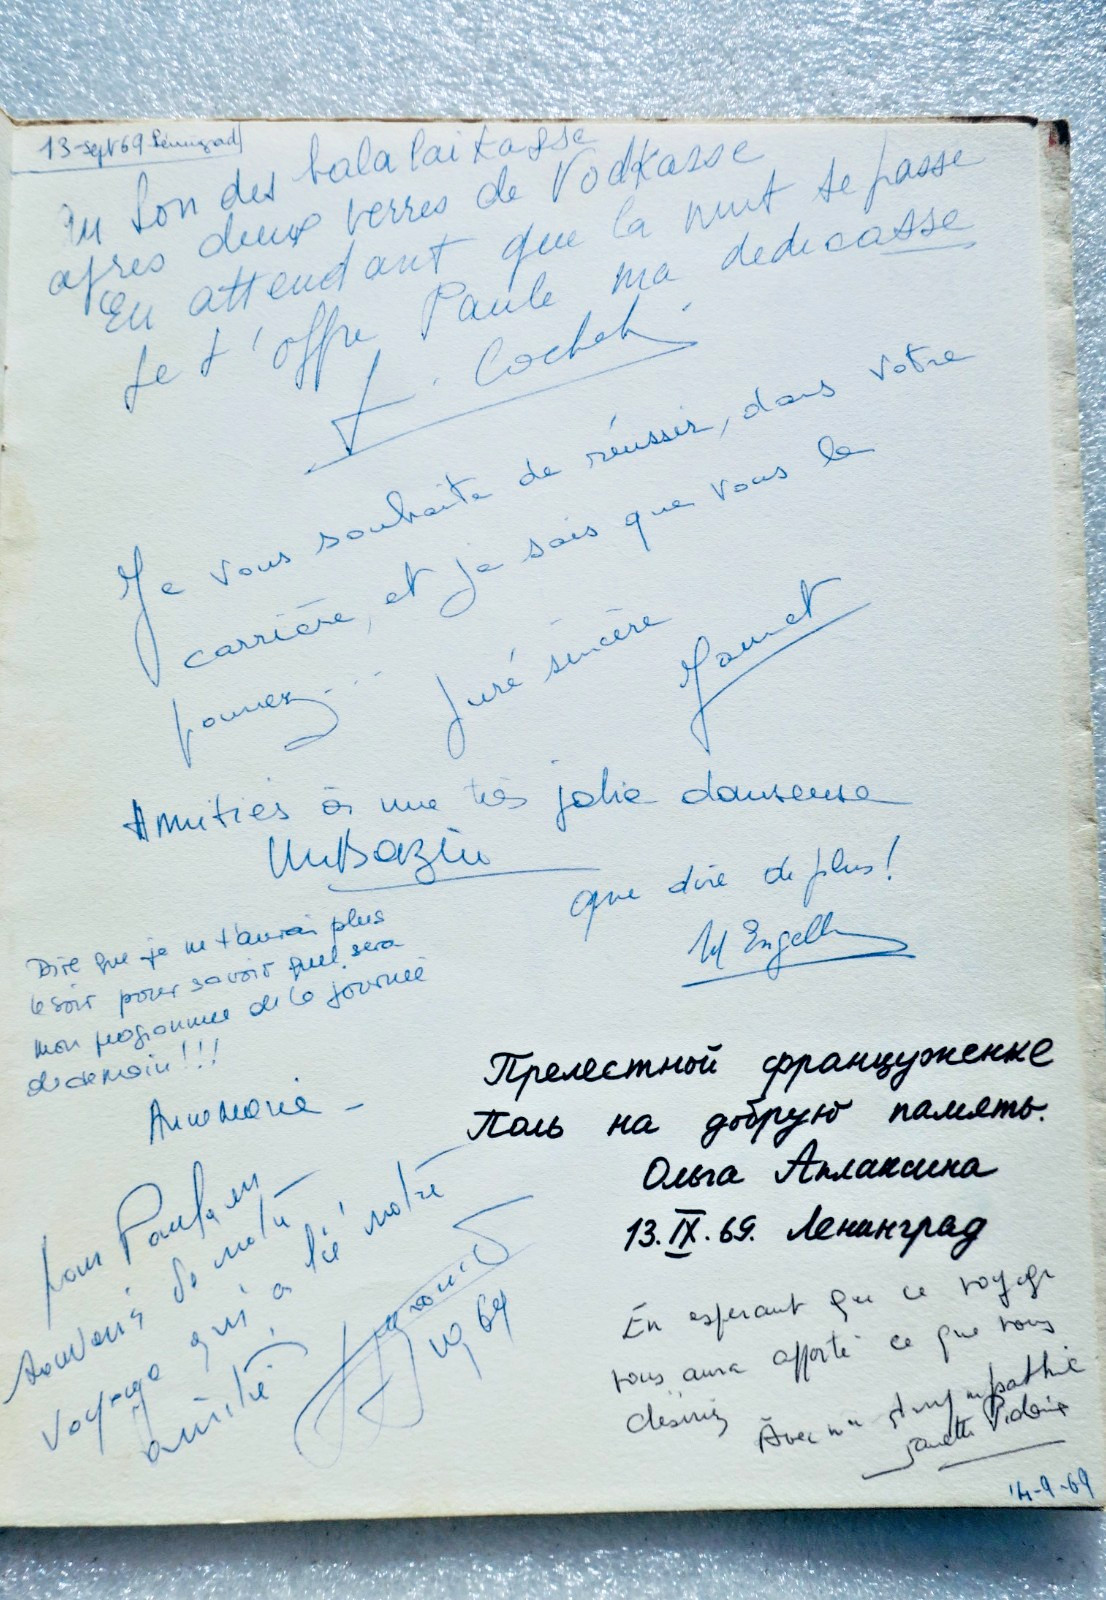 13-sept 69 Léningrad
Au son des balalaïkasse
après deux verres de Vodkasse
En attendant que la nuit se passe
Je t'offre Paule ma dedicasse
Cochet
Je vous souhaite de réussir, dans votre
carrière, et je sais que vous le
pouvez...
Juré sincère
Amitiés à une très jolie danseuse
M Bazin
que dire de plus!
M Engelh
Dire que je ne t'aurai plus
le soir pour savoir quel sera
mon programme de la journée
de demain!!!
Annemarie -
Прелестной француженке
Поль на добрую память.
Ольга Аплаксина
13.IX.69. Ленинград
pour Paule en
souvenir de notre
voyage qui a lié notre
amitié
69
En espérant que ce voyage
vous aura apporté ce que vous
désiriez
Avec ma sympathie
14-9-69